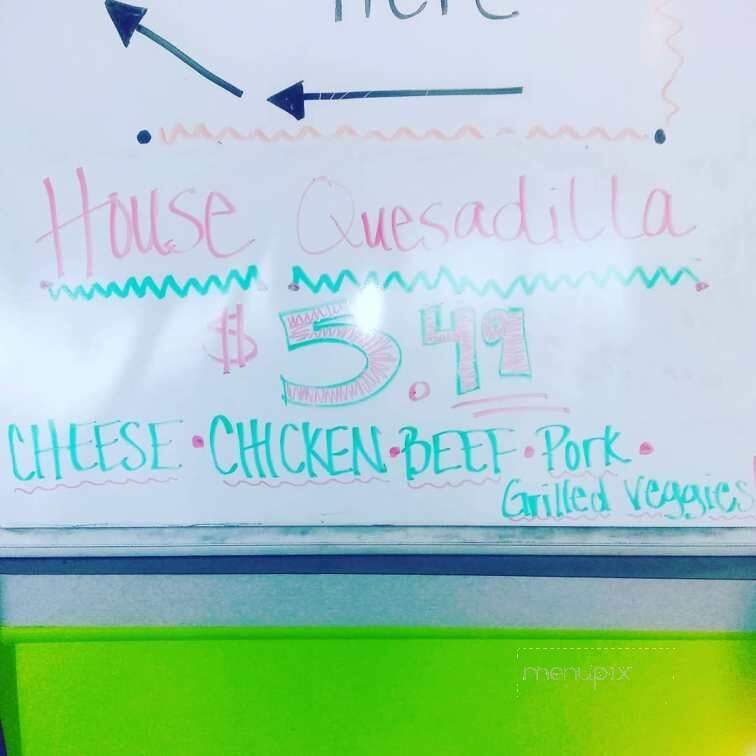 Here
House Quesadilla
$5.49
CHEESE • CHICKEN • BEEF • Pork •
Grilled veggies
menupix